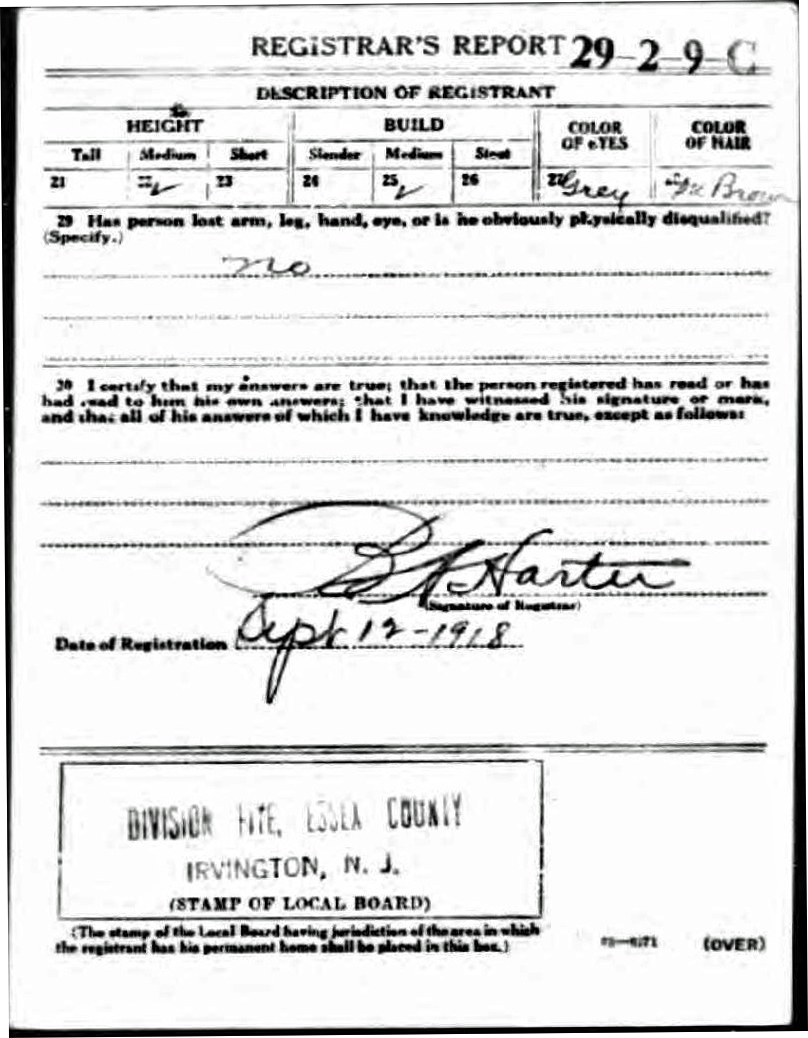 REGISTRAR'S REPORT 29-2-9-C
DESCRIPTION OF REGISTRANT
HEIGHT BUILD COLOR OF EYES COLOR OF HAIR
Tall Medium Short Slender Medium Stout
21 22 ✓ 23 24 25 ✓ 26 27 Grey 28 Brown
29 Has person lost arm, leg, hand, eye, or is he obviously physically disqualified?
(Specify.)
no
30 I certify that my answers are true; that the person registered has read or has
had read to him his own answers; that I have witnessed his signature or mark,
and that all of his answers of which I have knowledge are true, except as follows:
Harter
(Signature of Registrar)
Date of Registration Sept 12-1918
DIVISION FIVE, ESSEX COUNTY
IRVINGTON, N. J.
(STAMP OF LOCAL BOARD)
(The stamp of the Local Board having jurisdiction of the area in which
the registrant has his permanent home shall be placed in this box.)
(OVER)